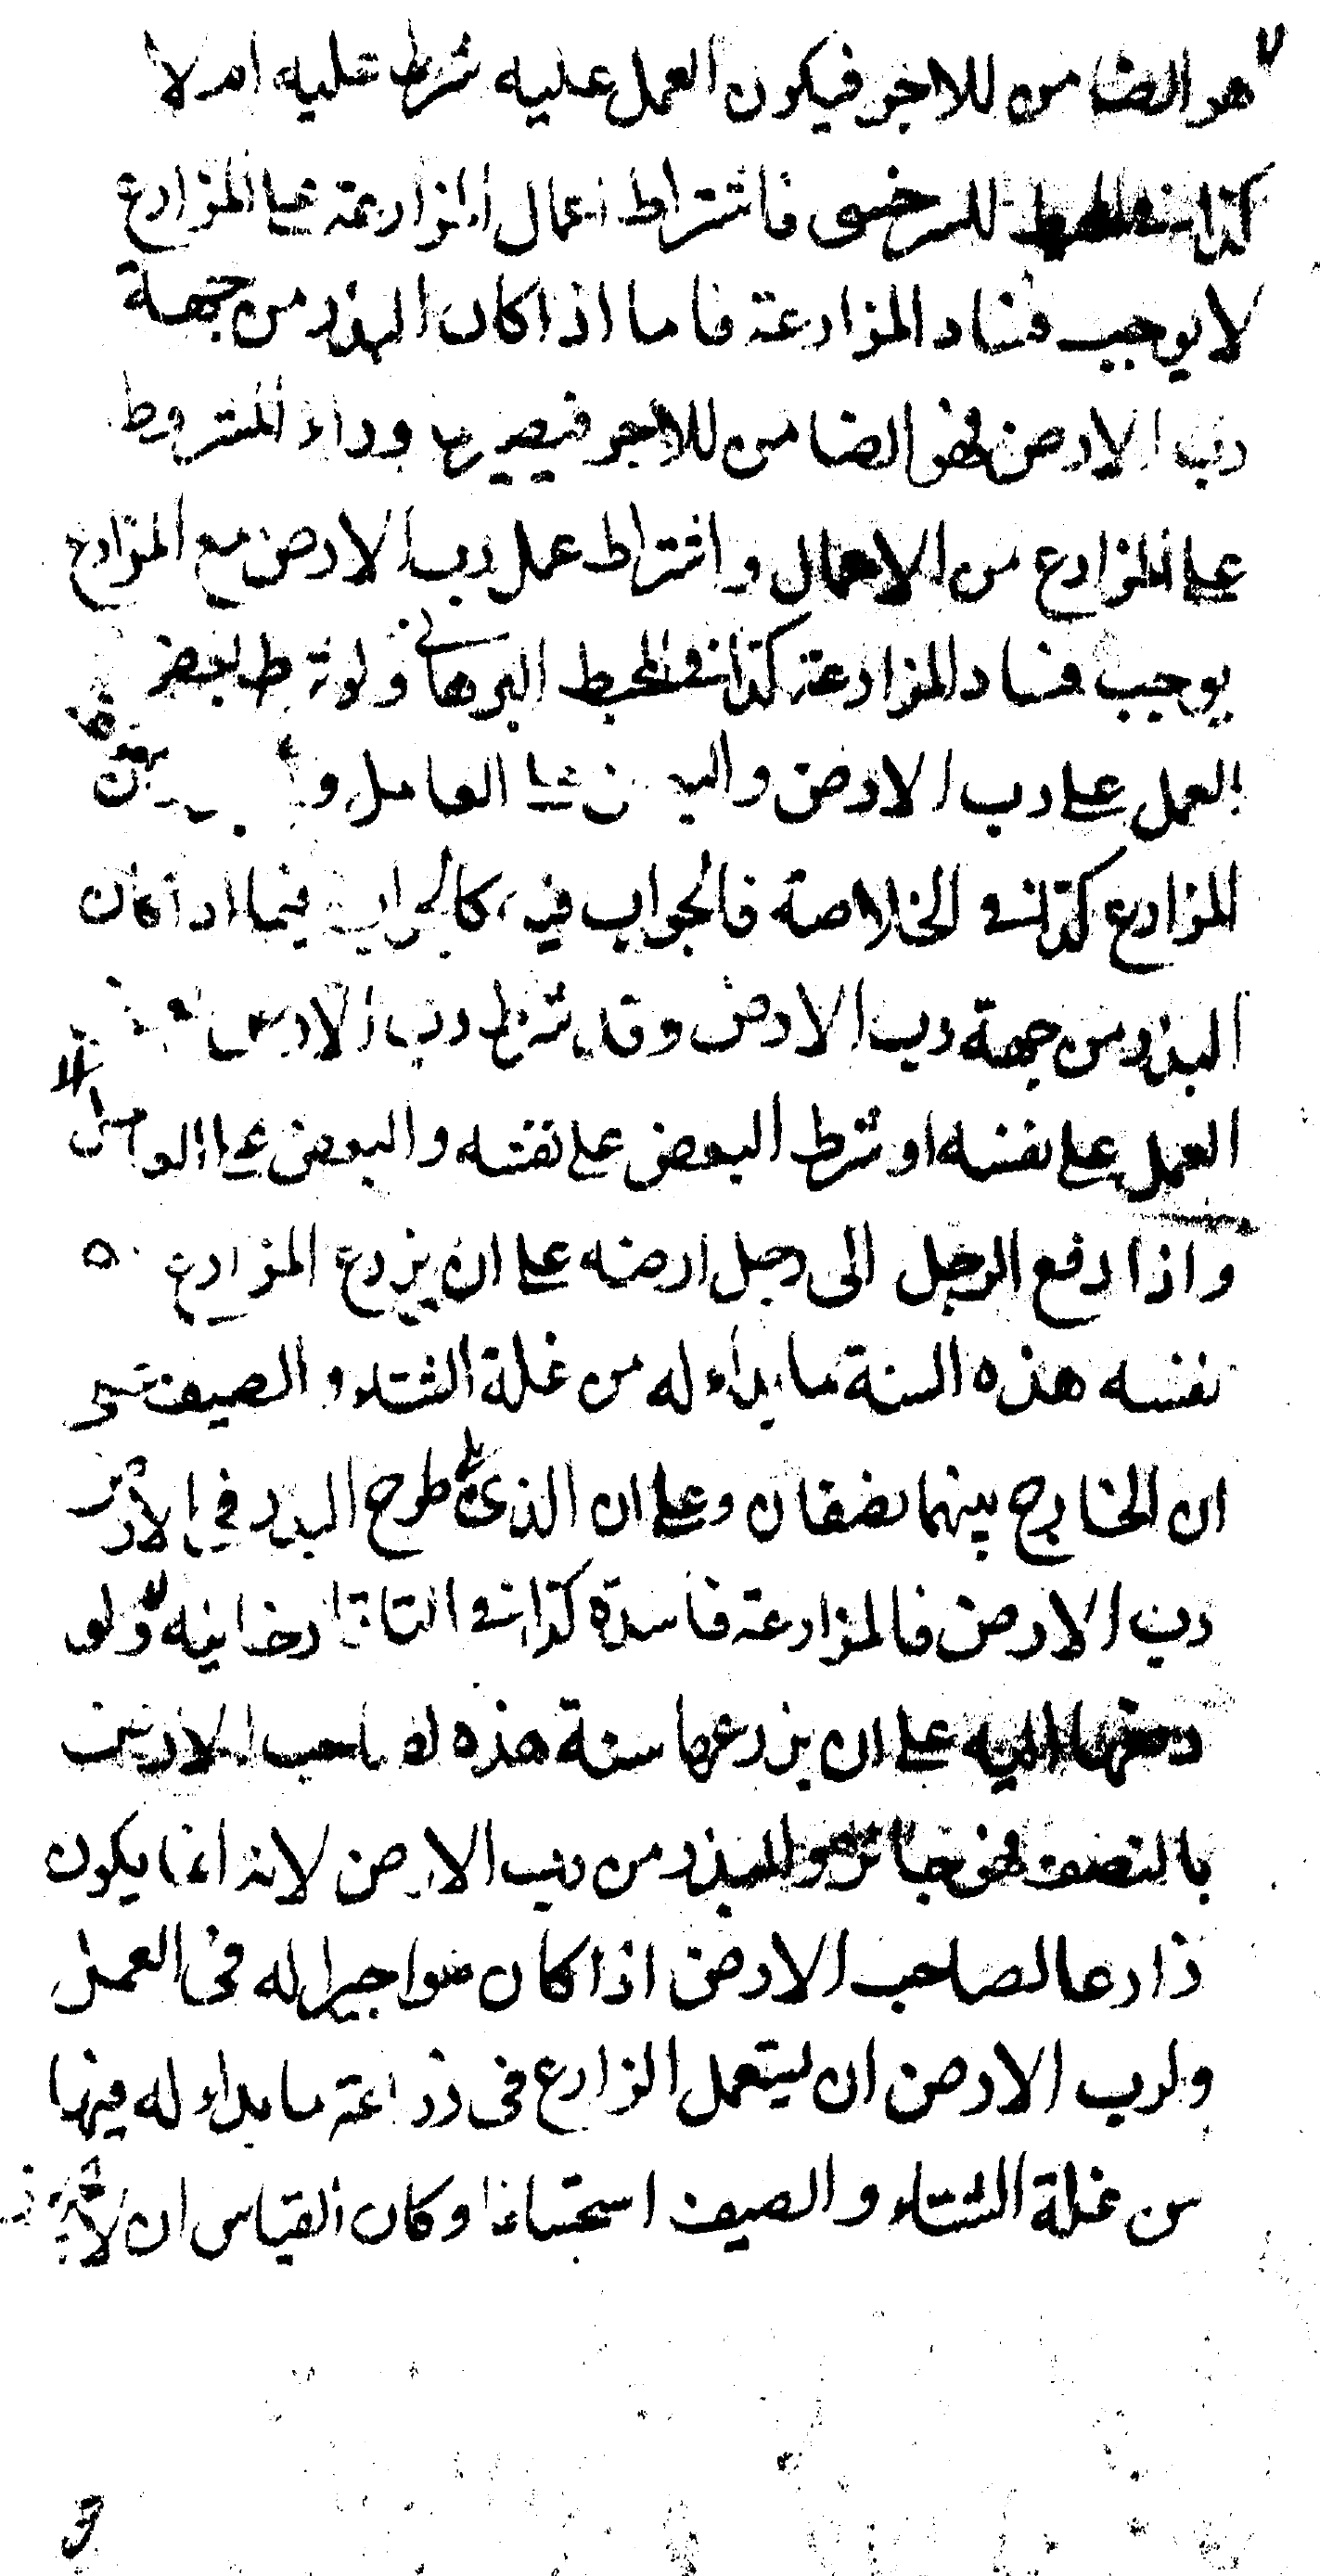 هو الضامن للاجر فيكون العمل عليه شرط عليه ام لا
كذا في المحيط للسرخسى فاشتراط اعمال المزارعة على المزارع
لا يوجب فساد المزارعة فاما اذا كان البذر من جهة
رب الارض فهو الضامن للاجر فيصير بما وراء المشروط
على المزارع من الاعمال واشتراط عمل رب الارض مع المزارع
يوجب فساد المزارعة كذا في المحيط البرهاني ولو شرط بعض
العمل على رب الارض والبعض على العامل و
المزارع كذا في الخلاصة فالجواب فيه كالجواب فيما اذا كان
البذر من جهة رب الارض وقد شرط رب الارض
العمل على نفسه او شرط البعض على نفسه والبعض على العامل
واذا دفع الرجل الى رجل ارضه على ان يزرع المزارع
نفسه هذه السنة ما بداء له من غلة الشتاء والصيف على
ان الخارج بينهما نصفان وعلى ان الذى طرح البذر في الارض
رب الارض فالمزارعة فاسدة كذا في التاتارخانيه ولو
دفعها اليه على ان يزرعها سنة هذه لصاحب الارض
بالنصف فهو جائز والبذر من رب الارض لانه انما يكون
زارعا لصاحب الارض اذا كان هو اجيرا له فى العمل
ولرب الارض ان يستعمل الزارع فى زراعة ما بداء له فيها
من غلة الشتاء والصيف استحسانا وكان القياس ان لا